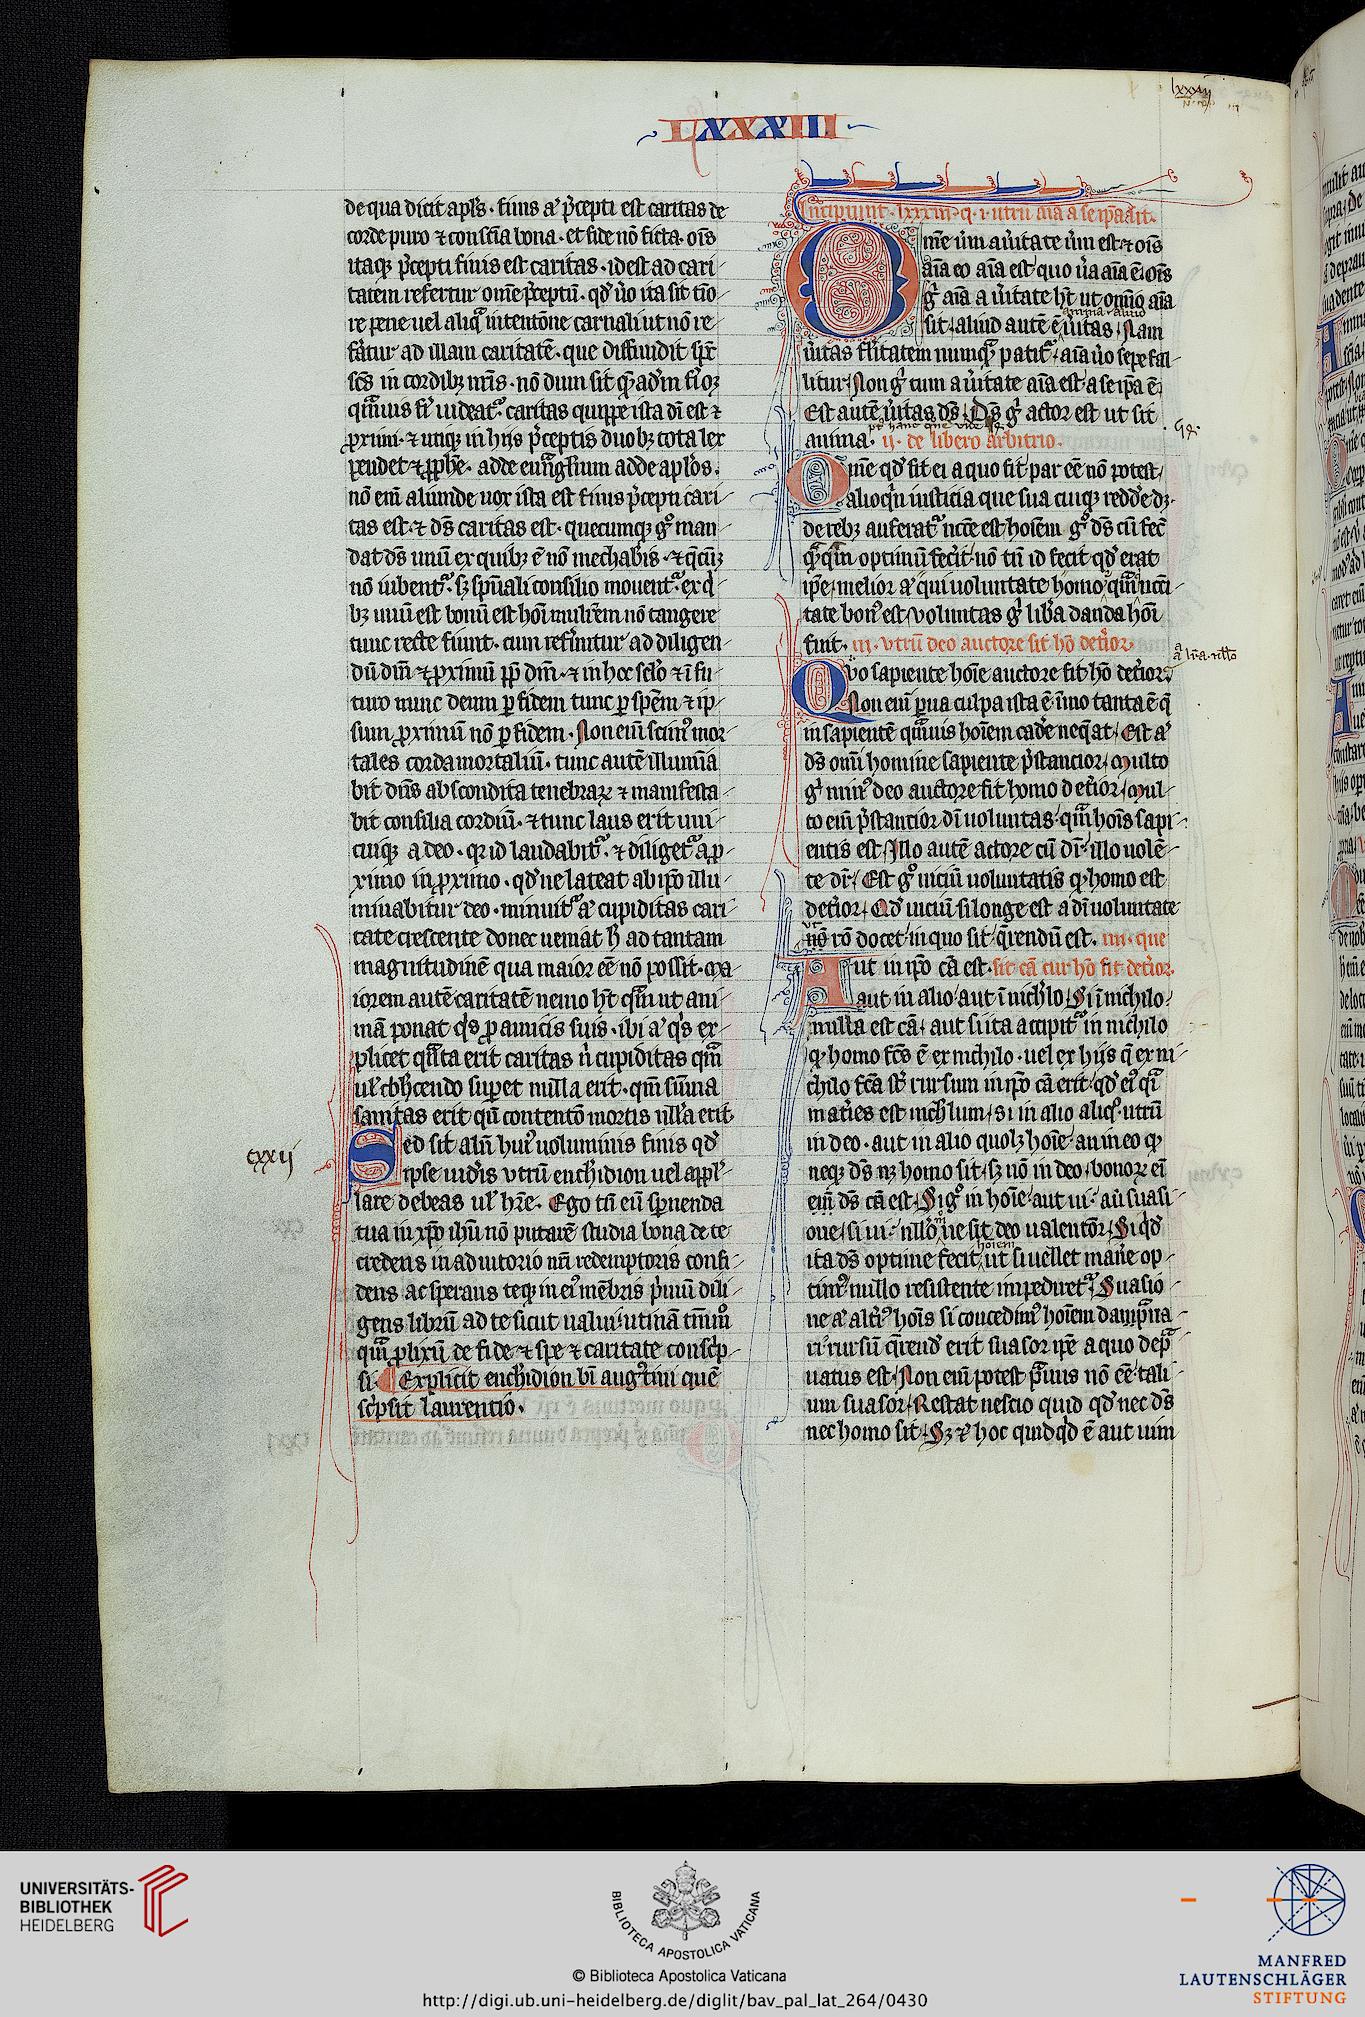 lxxxiij
LXXXIII
de qua dicit apl's. finis aͥ p̄cepti est caritas de
corde puro ⁊ consc̄ia bona. et fide nō ficta. oīs
itaqꝫ p̄cepti finis est caritas. id est ad cari-
tatem refertur om̄e p̄ceptū. qd̓ ṽo ita fit tīo-
re pene uel aliq̓ intentōne carnali ut nō re-
fātur ad illam caritatē. que diffundit sp̄c
sc̄s in cordibꝫ nr̄is. nō dum fit q̓ adm̄ fi͛i oꝫ
q̓muis fi͛i uideat᷒. caritas quippe ista dī est ⁊
ꝓximi. ⁊ utiqꝫ in hiis p̄ceptis duobꝫ tota lex
pendet ⁊ ꝓphe. adde euāgl̓ium adde apl'os.
nō eni aliunde uox ista est finis p̄cepti cari-
tas est. ⁊ ds̄ caritas est. quecumqꝫ gͦ man-
dat ds̄ unū ex quibꝫ ē nō mechabis. ⁊ q̄cūꝫ
nō iubent᷒. sꝫ sp̄uali consilio mouent᷒. ex q̓-
bꝫ unū est bonū est hōi mulie͛m nō tangere
tunc recte fiunt. cum ref͛untur ad diligen-
dū dm̄ ⁊ ꝓximū ꝓp̄ dm̄. ⁊ in hoc sc̄lo ⁊ ī fu-
turo nunc deum ꝑ fidem tunc ꝑ sp̄em ⁊ ip̄-
sum ꝓximū nō ꝑ fidem. Non eni scim᷒ mor-
tales corda mortaliū. tunc autē illumīa
bit dn̄s abscondita tenebraꝝ ⁊ manifesta-
bit consilia cordiū. ⁊ tunc laus erit uni-
cuiqꝫ a deo. qr id laudabit᷒. ⁊ diliget᷒ a ꝓ-
ximo in ꝓximo. qd̓ ne lateat ab ip̄o illu-
minabitur deo. minuit᷒ aͥ cupiditas cari-
tate crescente donec ueniat h̄ ad tantam
magnitudinē qua maior eē nō possit. ma-
iorem autē caritatē nemo h̄t q̄m ut ani-
mā ponat q̓s ꝓ amicis suis. ibi aͥ q̓s ex-
plicet q̄nta erit caritas ṅ cupiditas q̄m
ul' cohc̄endo supet nulla erit. qm̄ sūma
sanitas erit qn̄ contentō mortis nll'a erit
cxxij
Sed sit al'n̄ hui᷒ uoluminis finis qd̓
ipse uid͛is vtrūench͛idion uel appl'-
lare debeas ul' hr̄e. Ego tn̄ cū sp̄nenda
tua in xp̄o ihū nō putarē studia bona de te
credens in adiutorio nr̄i redemptoris confi-
dens ac sperans teqꝫ in ei᷒ mēbris p̄mū dili-
gens librū ad te sicut ualui utinā tm̄ mͦ
q̓m ꝓlixū de fide ⁊ spe ⁊ caritate consc̓p-
si. Explicit ench͛idion bī aug᷒tini quē
sc̓psit laurentio.
Incipiunt. lxxxiii. q. i. utrū aīa a se ip̄a sit.
Om̄e ūm a u̓itate ūm est. ⁊ oīs
aīa eo aīa est quo ūa aīa ē. oīs
gͥ aīa a u̓itate h̄t ut om̄io aīa
sit. aliud autē ē u̓itas. Nam
u̓itas fl'itatem numq̓ patit᷒. aīa ṽo sepe fal-
litur. Non gͥ cum a u̓itate aīa est a se ip̄a ē.
Est autē u̓itas ds̄. Ds̄ gͥ actor est ut sit
anima. ij. de libero arbitrio.
Om̄e qd̓ fit ei a quo fit par eē nō potest.
alioq̄n iusticia que sua cuiqꝫ redd͛e dꝫ
de rebꝫ auferat᷒ nc̄ce est. hoīem gͦ ds̄ cū fec̄
q̓q̓m optimū fec͛it. nō tn̄ id fecit qd̓ erat
ip̄e. melior aͥ qui uoluntate homo q̓m nc̄ci-
tate bon᷒ est. voluntas gͥ lib͛a danda hōi
fuit. iii. vtrū deo auctore sit hō det͛ior
Qvo sapiente hoīe auctore fit hō det͛ior.
Non eni ꝑua culpa ista ē. īmo tanta ē q̄
in sapientē q̓muis hoīem cad͛e neq̄at. Est aͥ
ds̄ omī homine sapiente p̄stancior. multo
gͥ min᷒ deo auctore fit homo det͛ior. mul-
to eni p̄stancior dī uoluntas. q̄m hoīs sapi-
entis est. Illo autē actore cū dr̄. illo uolē-
te dr̄. Est gͦ uiciū uoluntatis qͦ homo est
det͛ior. Qd̓ uiciū si longe est a dī uoluntate
ut rō docet. in quo sit q̄rendū est. iiii. que
Aut in ip̄o cā est. sit cā cur hō sit det͛ior.
aut in alio. aut ī nich͛lo. Si ī nichilo.
nulla est cā. aut si ita accipit᷒ in nichilo
qͦ homo fc̄s ē ex nichilo. uel ex hijs q̄ ex ni-
chilo fc̄a st̄ rursum in ip̄o cā erit. qd̓ ei᷒ q̓i
mat͛ies est nich͛lum. Si in alio aliqͦ. utrū
in deo. aut in alio quolꝫ hoīe. an in eo qͦ
neqꝫ ds̄ nꝫ homo sit. sꝫ nō in deo. bonoꝝ ei
em̄ ds̄ cā est. Si gͦ in hoīe aut ui. aū suasi-
one. si ui. nllōͦ. ne sit deo ualentior. Si qd̓
ita ds̄ optime fecit. ut si uellet manē̓ op-
tim᷒ nullo resistente impediret᷒. Suasio-
ne aͥ alt͛i᷒ hoīs si concedim᷒ hoīem dampna-
ri rursū q̄rend͛ erit suasor ip̄e a quo dep̓-
uatus est. Non eni potest p̄uus nō eē tali-
um suasor. Restat nescio quid qd̓ nec ds̄
nec homo sit. Sꝫ ⁊ hoc quidqd̓ ē aut uim
UNIVERSITÄTS-
BIBLIOTHEK
HEIDELBERG
BIBLIOTECA APOSTOLICA VATICANA
© Biblioteca Apostolica Vaticana
http://digi.ub.uni-heidelberg.de/diglit/bav_pal_lat_264/0430
MANFRED
LAUTENSCHLÄGER
STIFTUNG